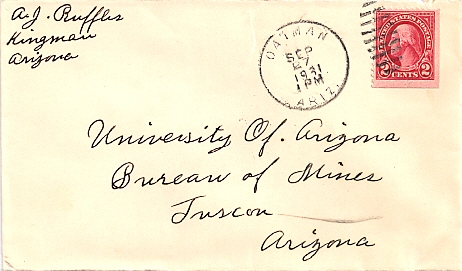 A.J. Ruffles
Kingman
Arizona
OATMAN
SEP
1931
1 PM
ARIZ.
UNITED STATES POSTAGE
2 CENTS 2
University Of. Arizona
Bureau of Mines
Tuscon
Arizona